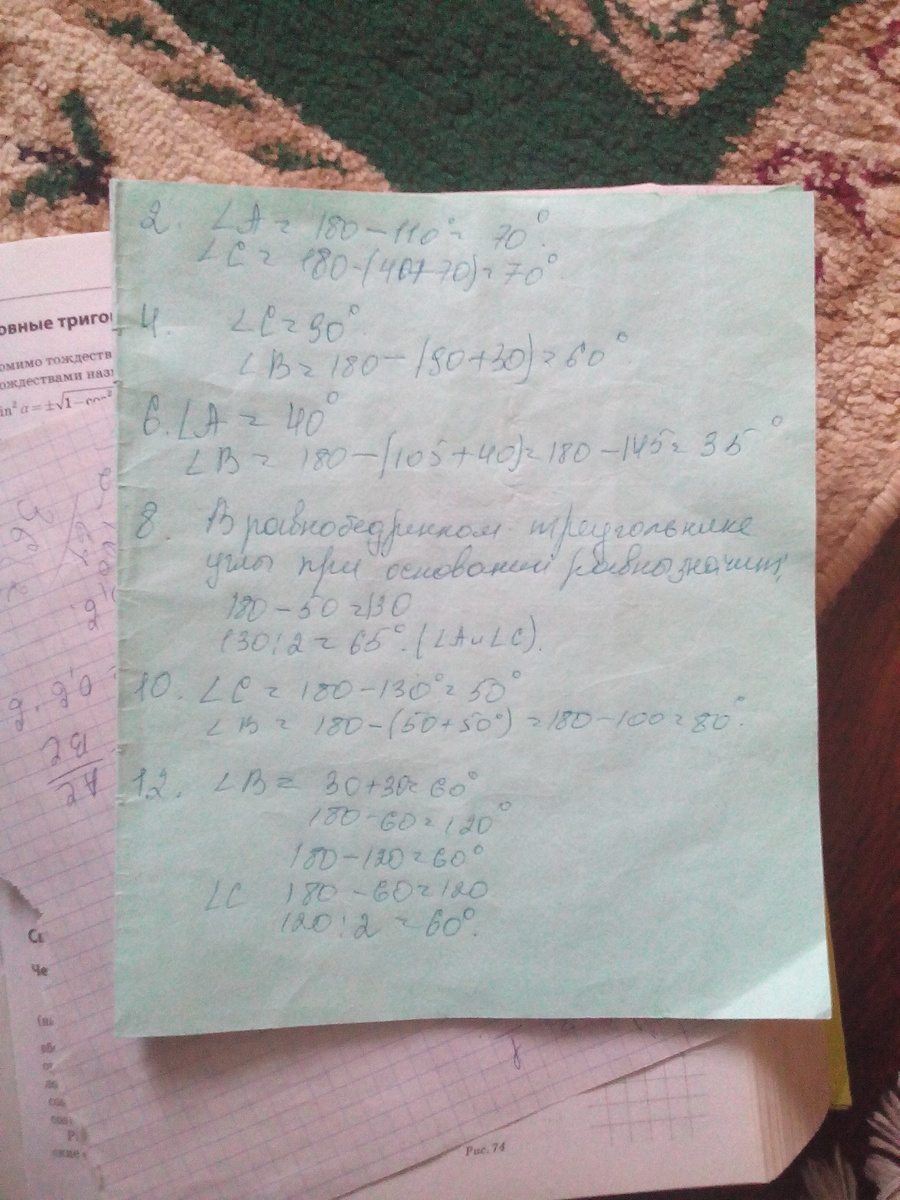 2. ∠A = 180 - 110° = 70°.
∠C = 180 - (40+70) = 70°.
4. ∠C = 90°.
∠B = 180 - (90+30) = 60°.
6. ∠A = 40°
∠B = 180 - (105+40) = 180 - 145 = 35°
8. В равнобедринном треугольнике
углы при основании равны значит,
180 - 50 = 130
130 : 2 = 65°. (∠A и ∠C).
10. ∠C = 180 - 130° = 50°
∠B = 180 - (50+50°) = 180 - 100 = 80°.
12. ∠B = 30+30 = 60°
180 - 60 = 120°
180 - 120 = 60°
∠C 180 - 60 = 120
120 : 2 = 60°.
овные триго
омимо тождеств
ождествами наз
Рис. 74